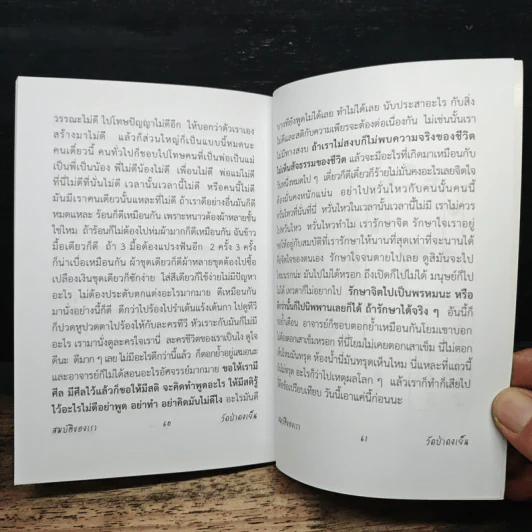 วรรณะไม่ดี ไปโทษปัญญาไม่ดีอีก ให้บอกว่าตัวเราเอง
สร้างมาไม่ดี แล้วก็ส่วนใหญ่ก็เป็นแบบนี้หมดนะ
คนเดี๋ยวนี้ คนทั่วไปก็ชอบไปโทษคนที่เป็นพ่อเป็นแม่
เป็นพี่เป็นน้อง พี่ไม่ดีน้องไม่ดี เพื่อนไม่ดี พ่อแม่ไม่ดี
ที่นี่ไม่ดีที่นั่นไม่ดี เวลานั้นเวลานี้ไม่ดี หรือคนนี้ไม่ดี
มันมีเราคนเดียวนั้นแหละที่ไม่ดี ถ้าเราดีอย่างอื่นมันก็ดี
หมดแหละ ร้อนก็ดีเหมือนกัน เพราะหนาวต้องผ้าหลายชั้น
ใช่ไหม ถ้าร้อนก็ไม่ต้องไปห่มผ้ามากก็ดีเหมือนกัน ฉันข้าว
มื้อเดียวก็ดี ถ้า 3 มื้อต้องแปรงฟันอีก 2 ครั้ง 3 ครั้ง
ก็น่าเบื่อเหมือนกัน ผ้าชุดเดียวก็ดีผ้าหลายชุดต้องไปซื้อ
เปลืองเงินชุดเดียวก็ซักง่าย ใส่สีเดียวก็ใช้ง่ายไม่มีปัญหา
อะไร ไม่ต้องประดับตกแต่งอะไรมากมาย ดีเหมือนกัน
มานั่งอย่างนี้ก็ดี ดีกว่าไปร้องไปรำเต้นแร้งเต้นกา ไปดูทีวี
ก็ปวดหูปวดตาไปร้องไห้กับละครทีวี หัวเราะกับมันก็ไม่มี
อะไร เรามานั่งดูละครใจเรานี่ ละครชีวิตของเราเป็นไง ดูใจ
ดีนะ ดีมาก ๆ เลย ไม่มีอะไรดีกว่านี้แล้ว ก็ตอกย้ำอยู่เสมอนะ
และอาจารย์ก็ไม่ได้สอนอะไรอัศจรรย์มากมาย ขอให้เรามี
ศีล มีศีลไว้แล้วก็ขอให้มีสติ จะคิดทำพูดอะไร ให้มีสติรู้
ไว้อะไรไม่ดีอย่าพูด อย่าทำ อย่าคิดมันไม่ดีไง อะไรมันดี
สมบัติของเรา 60 วัดป่าดงเจ็น
บางทียังพูดไม่ได้เลย ทำไม่ได้เลย นับประสาอะไร กับสิ่ง
ไม่ดีและสติกับความเพียรจะต้องต่อเนื่องกัน ไม่เช่นนั้นเรา
ไม่มีทางสงบ ถ้าเราไม่สงบก็ไม่พบความจริงของชีวิต
ไม่เห็นสัจธรรมของชีวิต แล้วจะมีอะไรที่เกิดมาเหมือนกับ
หนังหมดไป ๆ เดี๋ยวก็ดีเดี๋ยวก็ร้ายไม่มั่นคงอะไรเลยจิตใจ
ต้องมั่นคงหนักแน่น อย่าไปหวั่นไหวกับคนนั้นคนนี้
หวั่นไหวที่นั่นที่นี่ หวั่นไหวในเวลานั้นเวลานี้ไม่มี เราไม่ควร
ไปหวั่นไหว หวั่นไหวทำไม เรารักษาจิต รักษาใจเราอยู่
อยู่กับสมบัติที่เรารักษาให้นานที่สุดเท่าที่จะนานได้
จิตใจของตนเอง รักษาใจจนตายไปเลย ดูสิมันจะไป
นรกน่ะ มันไปไม่ได้หรอก ถึงเปิดก็ไปไม่ได้ มนุษย์ก็ไม่ไป
เทวดาก็ไม่อยากไป รักษาจิตไปเป็นพรหมนะ หรือ
ดีกว่านั้นก็ไปนิพพานเลยก็ได้ ถ้ารักษาได้จริง ๆ อันนี้ก็
เตือน อาจารย์ก็ชอบตอกย้ำเหมือนกันโยมเขาบอก
ตอกเสาเข็มหรือ ที่นี่โยมไม่เคยตอกเสาเข็ม นี่ไม่ตอก
มันทรุด ห้องน้ำนี่มันทรุดเห็นไหม นี่แหละที่แถวนี้
ทรุด อะไรก็ว่าไปเหตุผลโลก ๆ แล้วเราก็ทำก็เสียไป
ข้อเปรียบเทียบ วันนี้เอาแค่นี้ก่อนนะ
สมบัติของเรา 61 วัดป่าดงเจ็น